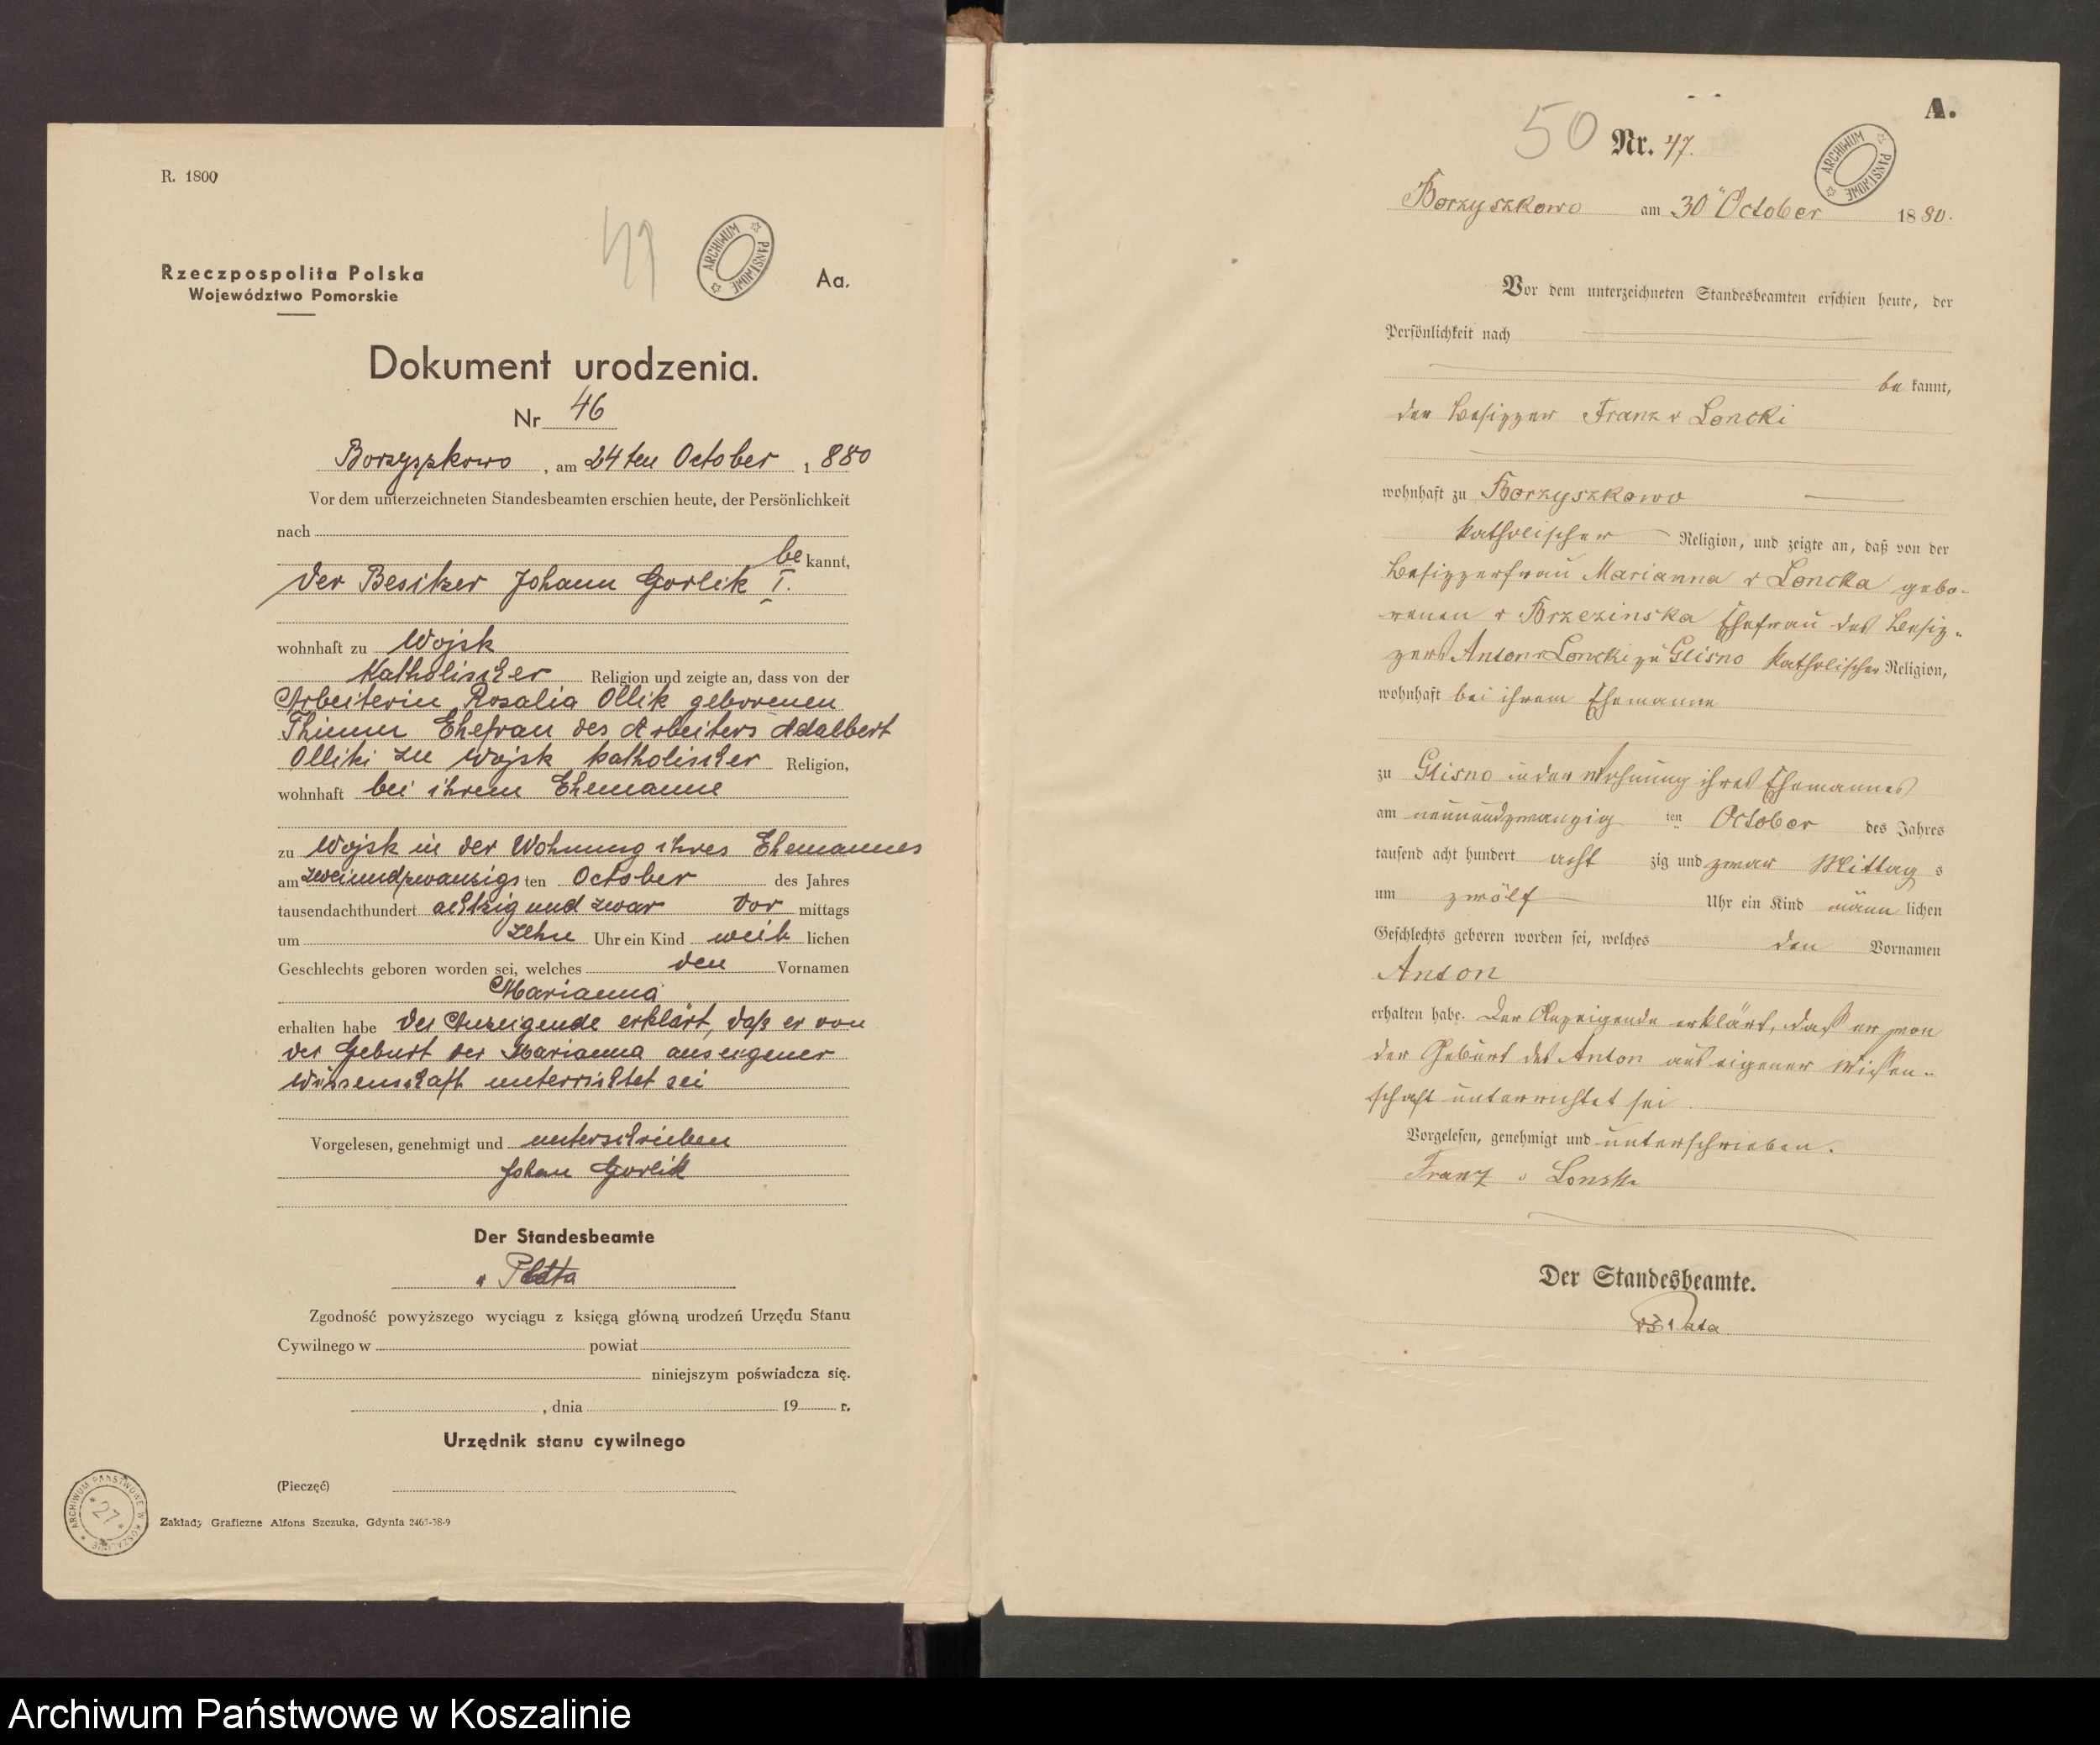 R. 1800
49
ARCHIWUM PAŃSTWOWE
Aa.
Rzeczpospolita Polska
Województwo Pomorskie
Dokument urodzenia.
Nr 46
Borzyszkowo, am 24ten October 1 880
Vor dem unterzeichneten Standesbeamten erschien heute, der Persönlichkeit
nach
be kannt,
Der Besitzer Johann Gorlik I.
wohnhaft zu Wojsk
Katholischer Religion und zeigte an, dass von der
Arbeiterin Rosalia Ollik geborenen
Ehefrau des Arbeiters Adalbert
zu Wojsk katholischer Religion,
wohnhaft bei ihrem Ehemanne
zu Wojsk in der Wohnung ihres Ehemannes
am zweiundzwanzigs ten October des Jahres
tausendachthundert achtzig und zwar Vor mittags
um zehn Uhr ein Kind weib lichen
Geschlechts geboren worden sei, welches den Vornamen
Marianna
erhalten habe Der Anzeigende erklärt, daß er von
der Geburt der Marianna aus eigener
Wissenschaft unterrichtet sei
Vorgelesen, genehmigt und unterschrieben
Johan Gorlik
Der Standesbeamte
Zgodność powyższego wyciągu z księgą główną urodzeń Urzędu Stanu
Cywilnego w powiat
niniejszym poświadcza się.
, dnia 19 r.
Urzędnik stanu cywilnego
(Pieczęć)
ARCHIWUM PAŃSTWOWE W KOSZALINIE
27
Zakłady Graficzne Alfons Szczuka, Gdynia 2465-38-9
A.
50 Nr. 47.
ARCHIWUM PAŃSTWOWE
Borzyszkowo am 30 October 18 80.
Vor dem unterzeichneten Standesbeamten erschien heute, der
Persönlichkeit nach
be kannt,
der Besitzer Franz v Loncki
wohnhaft zu Borzyszkowo
katholischer Religion, und zeigte an, daß von der
Besitzerfrau Marianna v Loncka gebo-
renen v Brzezinska Ehefrau des Besitz-
zers Anton v Loncki zu Glisno katholischer Religion,
wohnhaft bei ihrem Ehemanne
zu Glisno in der Wohnung ihres Ehemannes
am neunundzwanzig ten October des Jahres
tausend acht hundert acht zig und zwar Mittag s
um zwölf Uhr ein Kind männ lichen
Geschlechts geboren worden sei, welches den Vornamen
Anton
erhalten habe. Der Anzeigende erklärt, daß er von
der Geburt des Anton aus eigener Wissen-
schaft unterrichtet sei.
Vorgelesen, genehmigt und unterschrieben.
Franz v
Der Standesbeamte.
Archiwum Państwowe w Koszalinie